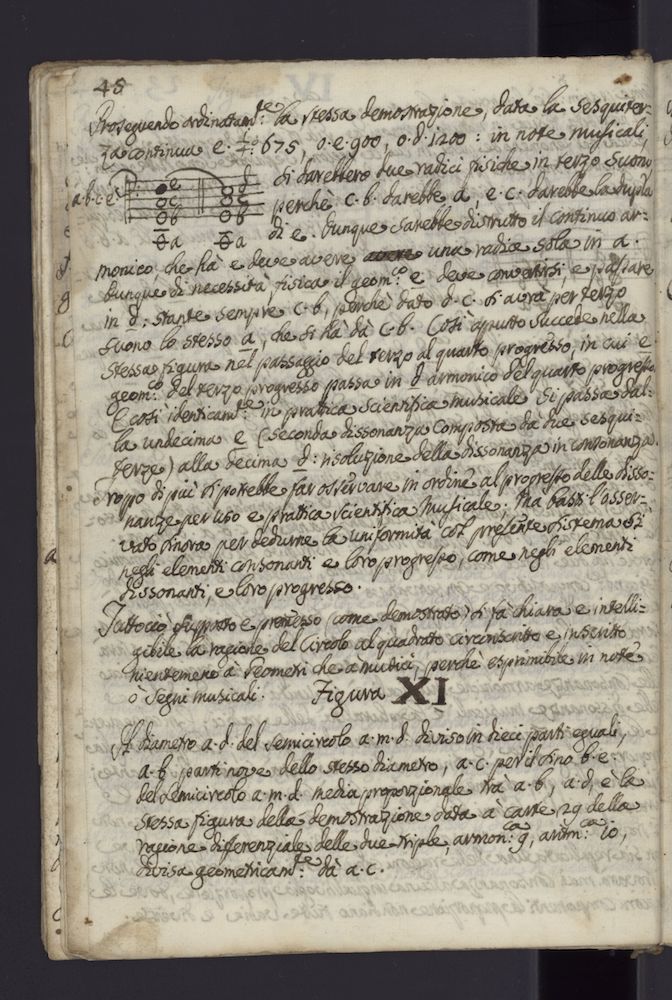 45
Proseguendo ordinatam.te la stessa demostrazione, data la sesquiter=
za continua e. 675, o.e. 900, o.d. 1200: in note musicali,
a.b.c.e. e d
c c
b b
a a
si darebbero due radici fisiche in terzo suono
perchè c.b. darebbe a, e.c. darebbe la dupla
di e. Dunque sarebbe distrutto il continuo ar=
monico che hà e deve avere una radice sola in a.
Dunque di necessità fisica il geom.co e deve convertirsi, e passare
in d: stante sempre c.b, perchè dato d.c. si avrà per terzo
suono lo stesso a, che si hà dà c.b. Così appunto succede nella
stessa figura nel passaggio del terzo al quarto progresso, in cui e
geom.co del terzo progresso passa in d armonico del quarto progresso.
E così identicam.te in prattica scientifica musicale si passa dal=
la undecima e (seconda dissonanza composta da due sesqui=
terze) alla decima d: risoluzione della dissonanza in consonanza.
Troppo di più si potrebbe far osservare in ordine al progresso delle disso=
nanze per uso e prattica scientifica musicale; ma basti l'osser=
vato sinora per dedurne la uniformità col presente sistema sì
negli elementi consonanti e loro progresso, come negli elementi
dissonanti, e loro progresso.
Tuttociò supposto e premesso (come demostrato) si fà chiara e intelli=
gibile la ragione del Circolo al quadrato circonscritto e inscritto
nientemeno à Geometri che a musici, perchè esprimibile in note
ò segni musicali. Figura XI
Il diametro a.d. del semicircolo a.m.d. diviso in dieci parti eguali,
a.b. parti nove dello stesso diametro, a.c. per il sino b.e.
del semicircolo a.m.d. media proporzionale trà a.b, a.d, è la
stessa figura della demostrazione data à carte 29 della
ragione differenziale delle due triple, armon.ca 9, aritm.ca 10,
divisa geometricam.te dà a.c.